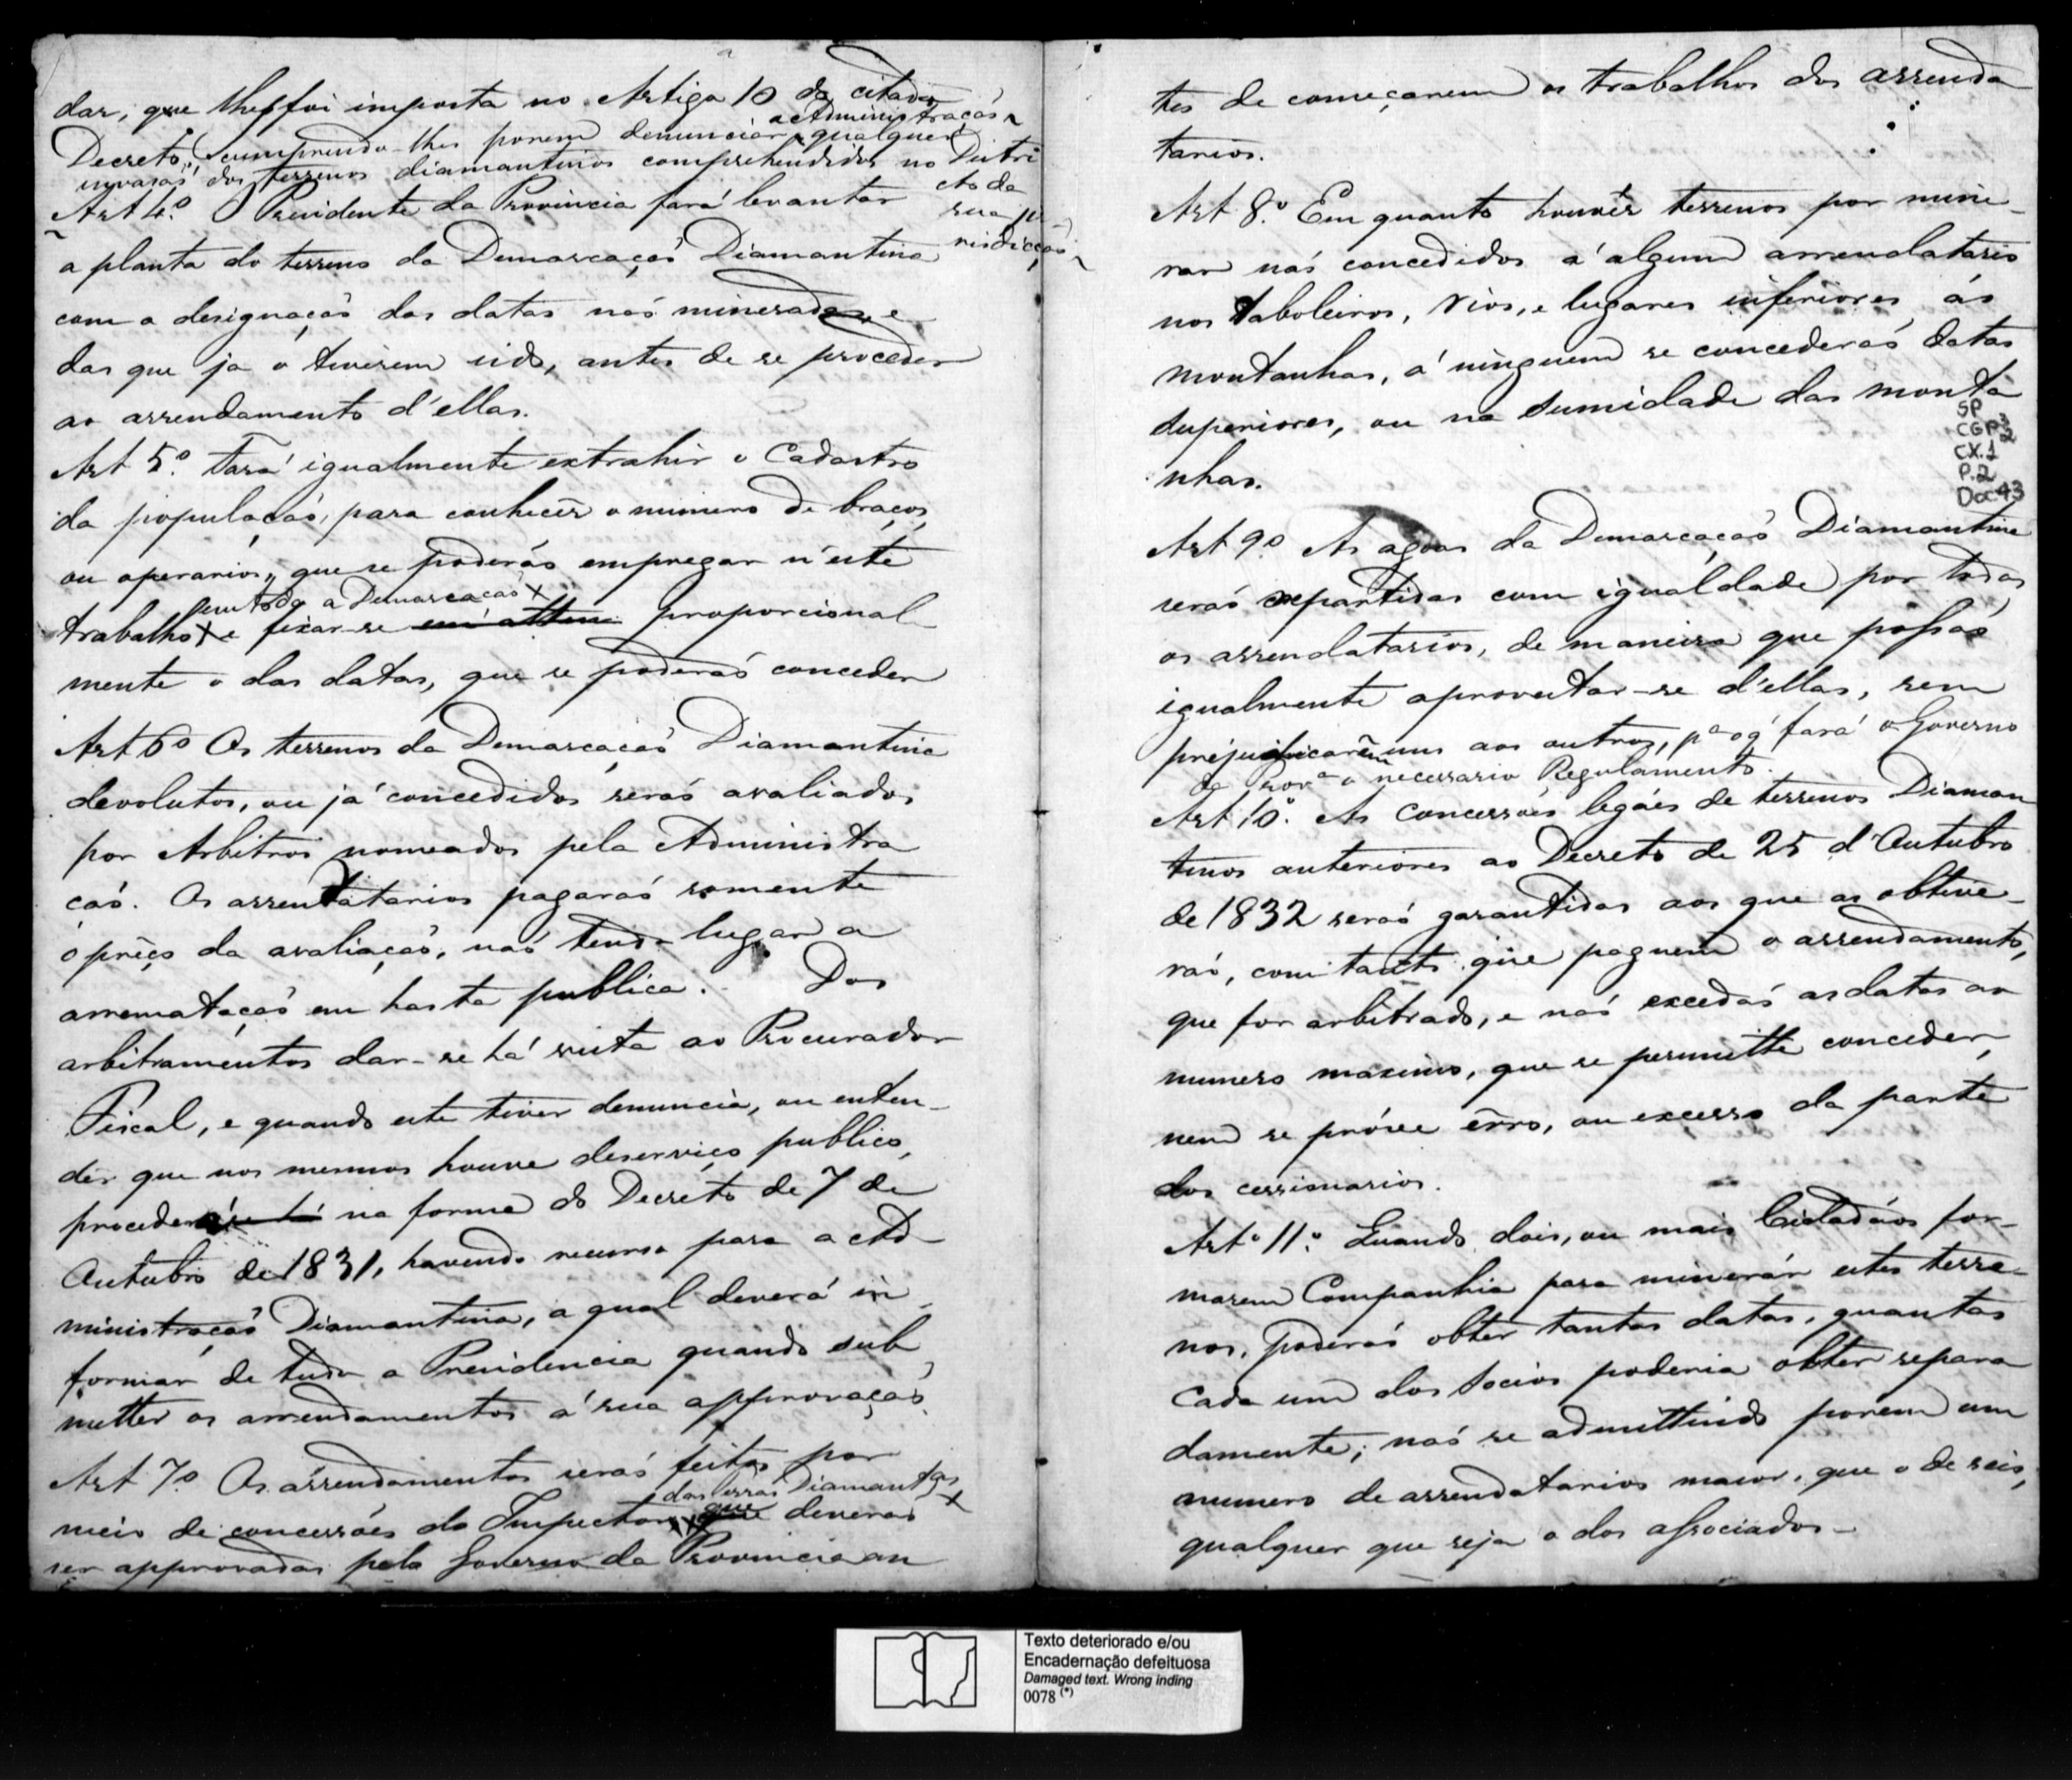 dar, que lhes foi imposta no Artigo 10 do citado
Decreto, cumprindo-lhes porem denunciar a Administraçaõ qualquer
invasaõ dos terrenos diamantinos comprehendidos no Distri
cto da
sua ju
risdicçaõ
Art 4.º O Presidente da Provincia fará levantar
a planta do terreno da Demarcaçaõ Diamantina
com a designaçaõ das datas naõ mineradas, e
das que ja o tiverem sido, antes de se proceder
ao arrendamento d'ellas.
Art 5.º Fará igualmente extrahir o Cadastro
da populaçaõ, para conhecer o numero de braços,
ou operarios, que se poderáõ empregar n'este
em toda a Demarcaçaõ
trabalho e fixar-se proporcional
mente o das datas, que se poderaõ conceder
Art 6º Os terrenos da Demarcaçaõ Diamantina
devolutos, ou já concedidos seraõ avaliados
por Arbitros nomeados pela Administra
çaõ. Os arrendatarios pagaraõ somente
o prêço da avaliaçaõ, naõ tendo lugar a
arremataçaõ em hasta publica. Dos
arbitramentos dar-se há vista ao Procurador
Fiscal, e quando este tiver denuncia, ou enten-
der que nos mesmos houve deserviço publico,
procederá se há na forma do Decreto de 7 de
Outubro de 1831, havendo recurso para a Ad-
ministraçaõ Diamantina, a qual deverá in-
formar de tudo a Presidencia quando sub
metter os arrendamentos á sua approvaçaõ.
Art 7.º Os arrendamentos seraõ feitos por
das terras Diamantas
meio de concessões do Inspector que deveraõ
ser approvadas pelo Governo da Provincia an
tes de começarem os trabalhos dos arrenda
tarios.
Art 8.º Em quanto houvér terrenos por mine-
rar naõ concedidos a' algum arrendatario
nos taboleiros, rios, e lugares inferiores ás
montanhas, á ninguem se concederáõ datas
superiores, ou na sumidade das monta
nhas.
SP
CGP3
2
CX.1
P.2
Doc43
Art 9.º As agoas da Demarcaçaõ Diamantina
seraõ repartidas com igualdade por todos
os arrendatarios, de maneira que possaõ
igualmente aproveitar-se d'ellas, sem
prejudicarem uns aos outros, pª o q' fará o Governo
da Provª o necessario Regulamento.
Art 10.º As concessões legáes de terrenos Diaman
tinos anteriores ao Decreto de 25 d'Outubro
de 1832 seraõ garantidas aos que as obtive-
raõ, com tanto que paguem o arrendamento,
que for arbitrado, e naõ excedaõ as datas ao
numero maximo, que se permitte conceder,
nem se próve êrro, ou excesso da parte
dos cessionarios.
Artº 11.º Quando dois, ou mais Cidadãos for-
marem Companhia para minerár estes terre-
nos, poderáõ obter tantas datas, quantas
Cada um dos Socios poderia obter separa
damente; naõ se admittindo porem um
numero de arrendatarios maior, que o de seis,
qualquer que seja o dos associados-
Texto deteriorado e/ou
Encadernação defeituosa
Damaged text. Wrong inding
0078 (*)